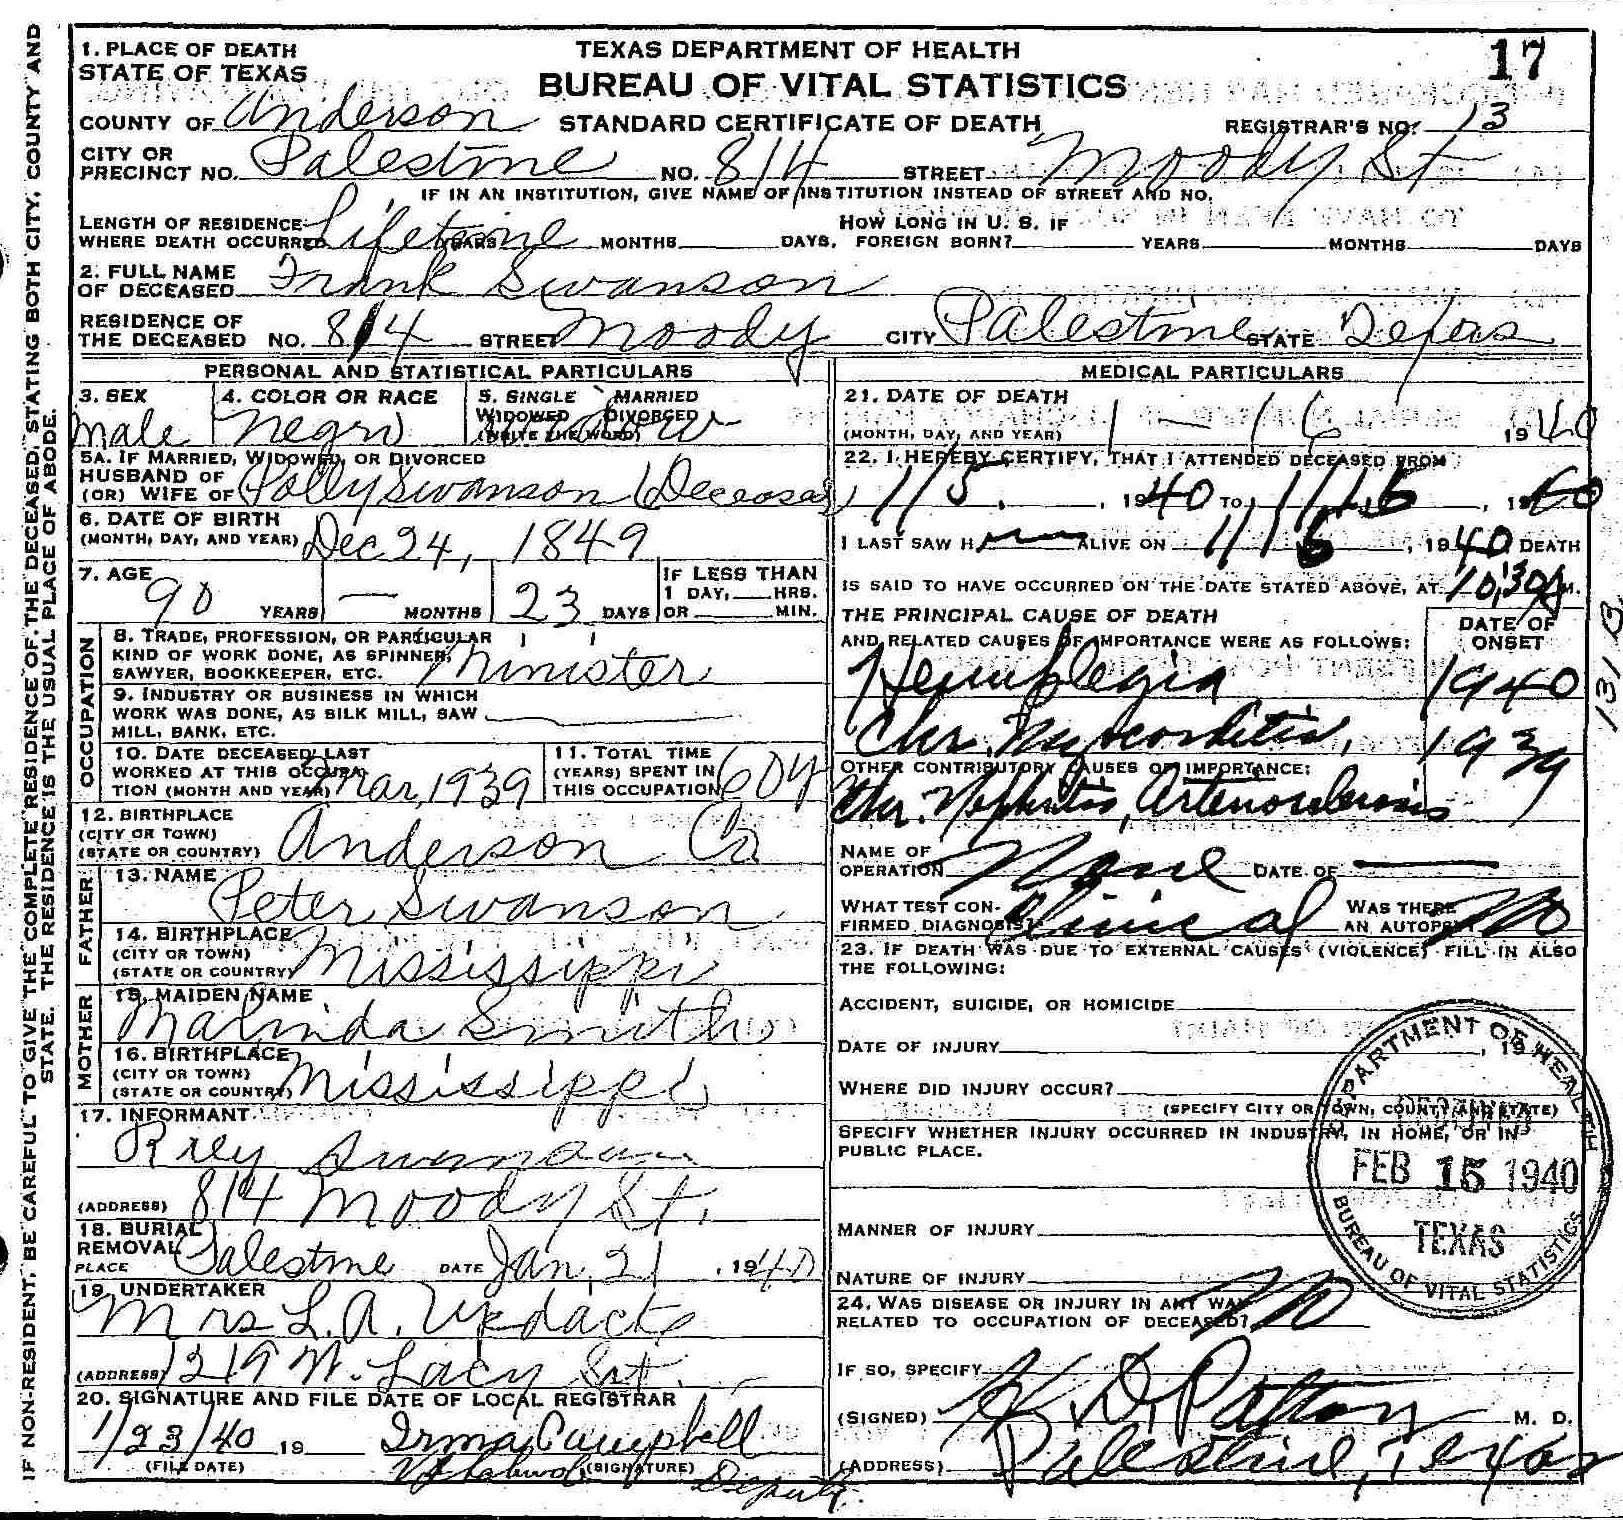 IF NON-RESIDENT, BE CAREFUL TO GIVE THE COMPLETE RESIDENCE OF THE DECEASED, STATING BOTH CITY, COUNTY AND
STATE. THE RESIDENCE IS THE USUAL PLACE OF ABODE.
TEXAS DEPARTMENT OF HEALTH
BUREAU OF VITAL STATISTICS
STANDARD CERTIFICATE OF DEATH
17
REGISTRAR'S NO. 13
1. PLACE OF DEATH
STATE OF TEXAS
COUNTY OF Anderson
CITY OR
PRECINCT NO. Palestine NO. 814 STREET Moody St
IF IN AN INSTITUTION, GIVE NAME OF INSTITUTION INSTEAD OF STREET AND NO.
LENGTH OF RESIDENCE HOW LONG IN U. S. IF
WHERE DEATH OCCURRED Lifetime YEARS MONTHS DAYS. FOREIGN BORN? YEARS MONTHS DAYS
2. FULL NAME
OF DECEASED Frank Swanson
RESIDENCE OF
THE DECEASED NO. 814 STREET Moody CITY Palestine STATE Texas
PERSONAL AND STATISTICAL PARTICULARS
3. SEX 4. COLOR OR RACE 5. SINGLE MARRIED
WIDOWED DIVORCED
(WRITE THE WORD)
male negro widow
5A. IF MARRIED, WIDOWED, OR DIVORCED
HUSBAND OF
(OR) WIFE OF Polly Swanson (Deceased)
6. DATE OF BIRTH
(MONTH, DAY, AND YEAR) Dec 24, 1849
7. AGE IF LESS THAN
90 YEARS — MONTHS 23 DAYS 1 DAY, HRS.
OR MIN.
OCCUPATION
8. TRADE, PROFESSION, OR PARTICULAR
KIND OF WORK DONE, AS SPINNER,
SAWYER, BOOKKEEPER, ETC. Minister
9. INDUSTRY OR BUSINESS IN WHICH
WORK WAS DONE, AS SILK MILL, SAW
MILL, BANK, ETC.
10. DATE DECEASED LAST
WORKED AT THIS OCCUPA-
TION (MONTH AND YEAR) Mar, 1939
11. TOTAL TIME
(YEARS) SPENT IN
THIS OCCUPATION 60y
12. BIRTHPLACE
(CITY OR TOWN)
(STATE OR COUNTRY) Anderson Co
FATHER
13. NAME
Peter Swanson
14. BIRTHPLACE
(CITY OR TOWN)
(STATE OR COUNTRY) Mississippi
MOTHER
15. MAIDEN NAME
Malinda Smith
16. BIRTHPLACE
(CITY OR TOWN)
(STATE OR COUNTRY) Mississippi
17. INFORMANT
(ADDRESS) 814 Moody St.
18. BURIAL
REMOVAL
PLACE Palestine DATE Jan, 21, 1940
19. UNDERTAKER
Mrs L. A.
(ADDRESS) 1219 N. Lacy St.
20. SIGNATURE AND FILE DATE OF LOCAL REGISTRAR
1/23/40 19 Irma Campbell
(FILE DATE) (SIGNATURE) Deputy.
MEDICAL PARTICULARS
21. DATE OF DEATH
(MONTH, DAY, AND YEAR) 1 - 16 1940
22. I HEREBY CERTIFY, THAT I ATTENDED DECEASED FROM
1/5, 1940 TO 1/16, 1940
I LAST SAW Him ALIVE ON 1/16, 1940. DEATH
IS SAID TO HAVE OCCURRED ON THE DATE STATED ABOVE, AT 10:30 A M.
THE PRINCIPAL CAUSE OF DEATH
AND RELATED CAUSES OF IMPORTANCE WERE AS FOLLOWS:
DATE OF
ONSET
Hemiplegia 1940
Chr. Myocarditis, 1939
OTHER CONTRIBUTORY CAUSES OF IMPORTANCE:
Chr. Nephritis, Arteriosclerosis
131 B
NAME OF
OPERATION None DATE OF —
WHAT TEST CON-
FIRMED DIAGNOSIS? Clinical WAS THERE
AN AUTOPSY No
23. IF DEATH WAS DUE TO EXTERNAL CAUSES (VIOLENCE) FILL IN ALSO
THE FOLLOWING:
ACCIDENT, SUICIDE, OR HOMICIDE
DATE OF INJURY , 19
WHERE DID INJURY OCCUR?
(SPECIFY CITY OR TOWN, COUNTY AND STATE)
SPECIFY WHETHER INJURY OCCURRED IN INDUSTRY, IN HOME, OR IN
PUBLIC PLACE.
MANNER OF INJURY
NATURE OF INJURY
24. WAS DISEASE OR INJURY IN ANY WAY
RELATED TO OCCUPATION OF DECEASED? No
IF SO, SPECIFY
(SIGNED) K. D. Patton M. D.
(ADDRESS) Palestine, Texas
DEPARTMENT OF HEALTH
RECEIVED
FEB 15 1940
TEXAS
BUREAU OF VITAL STATISTICS